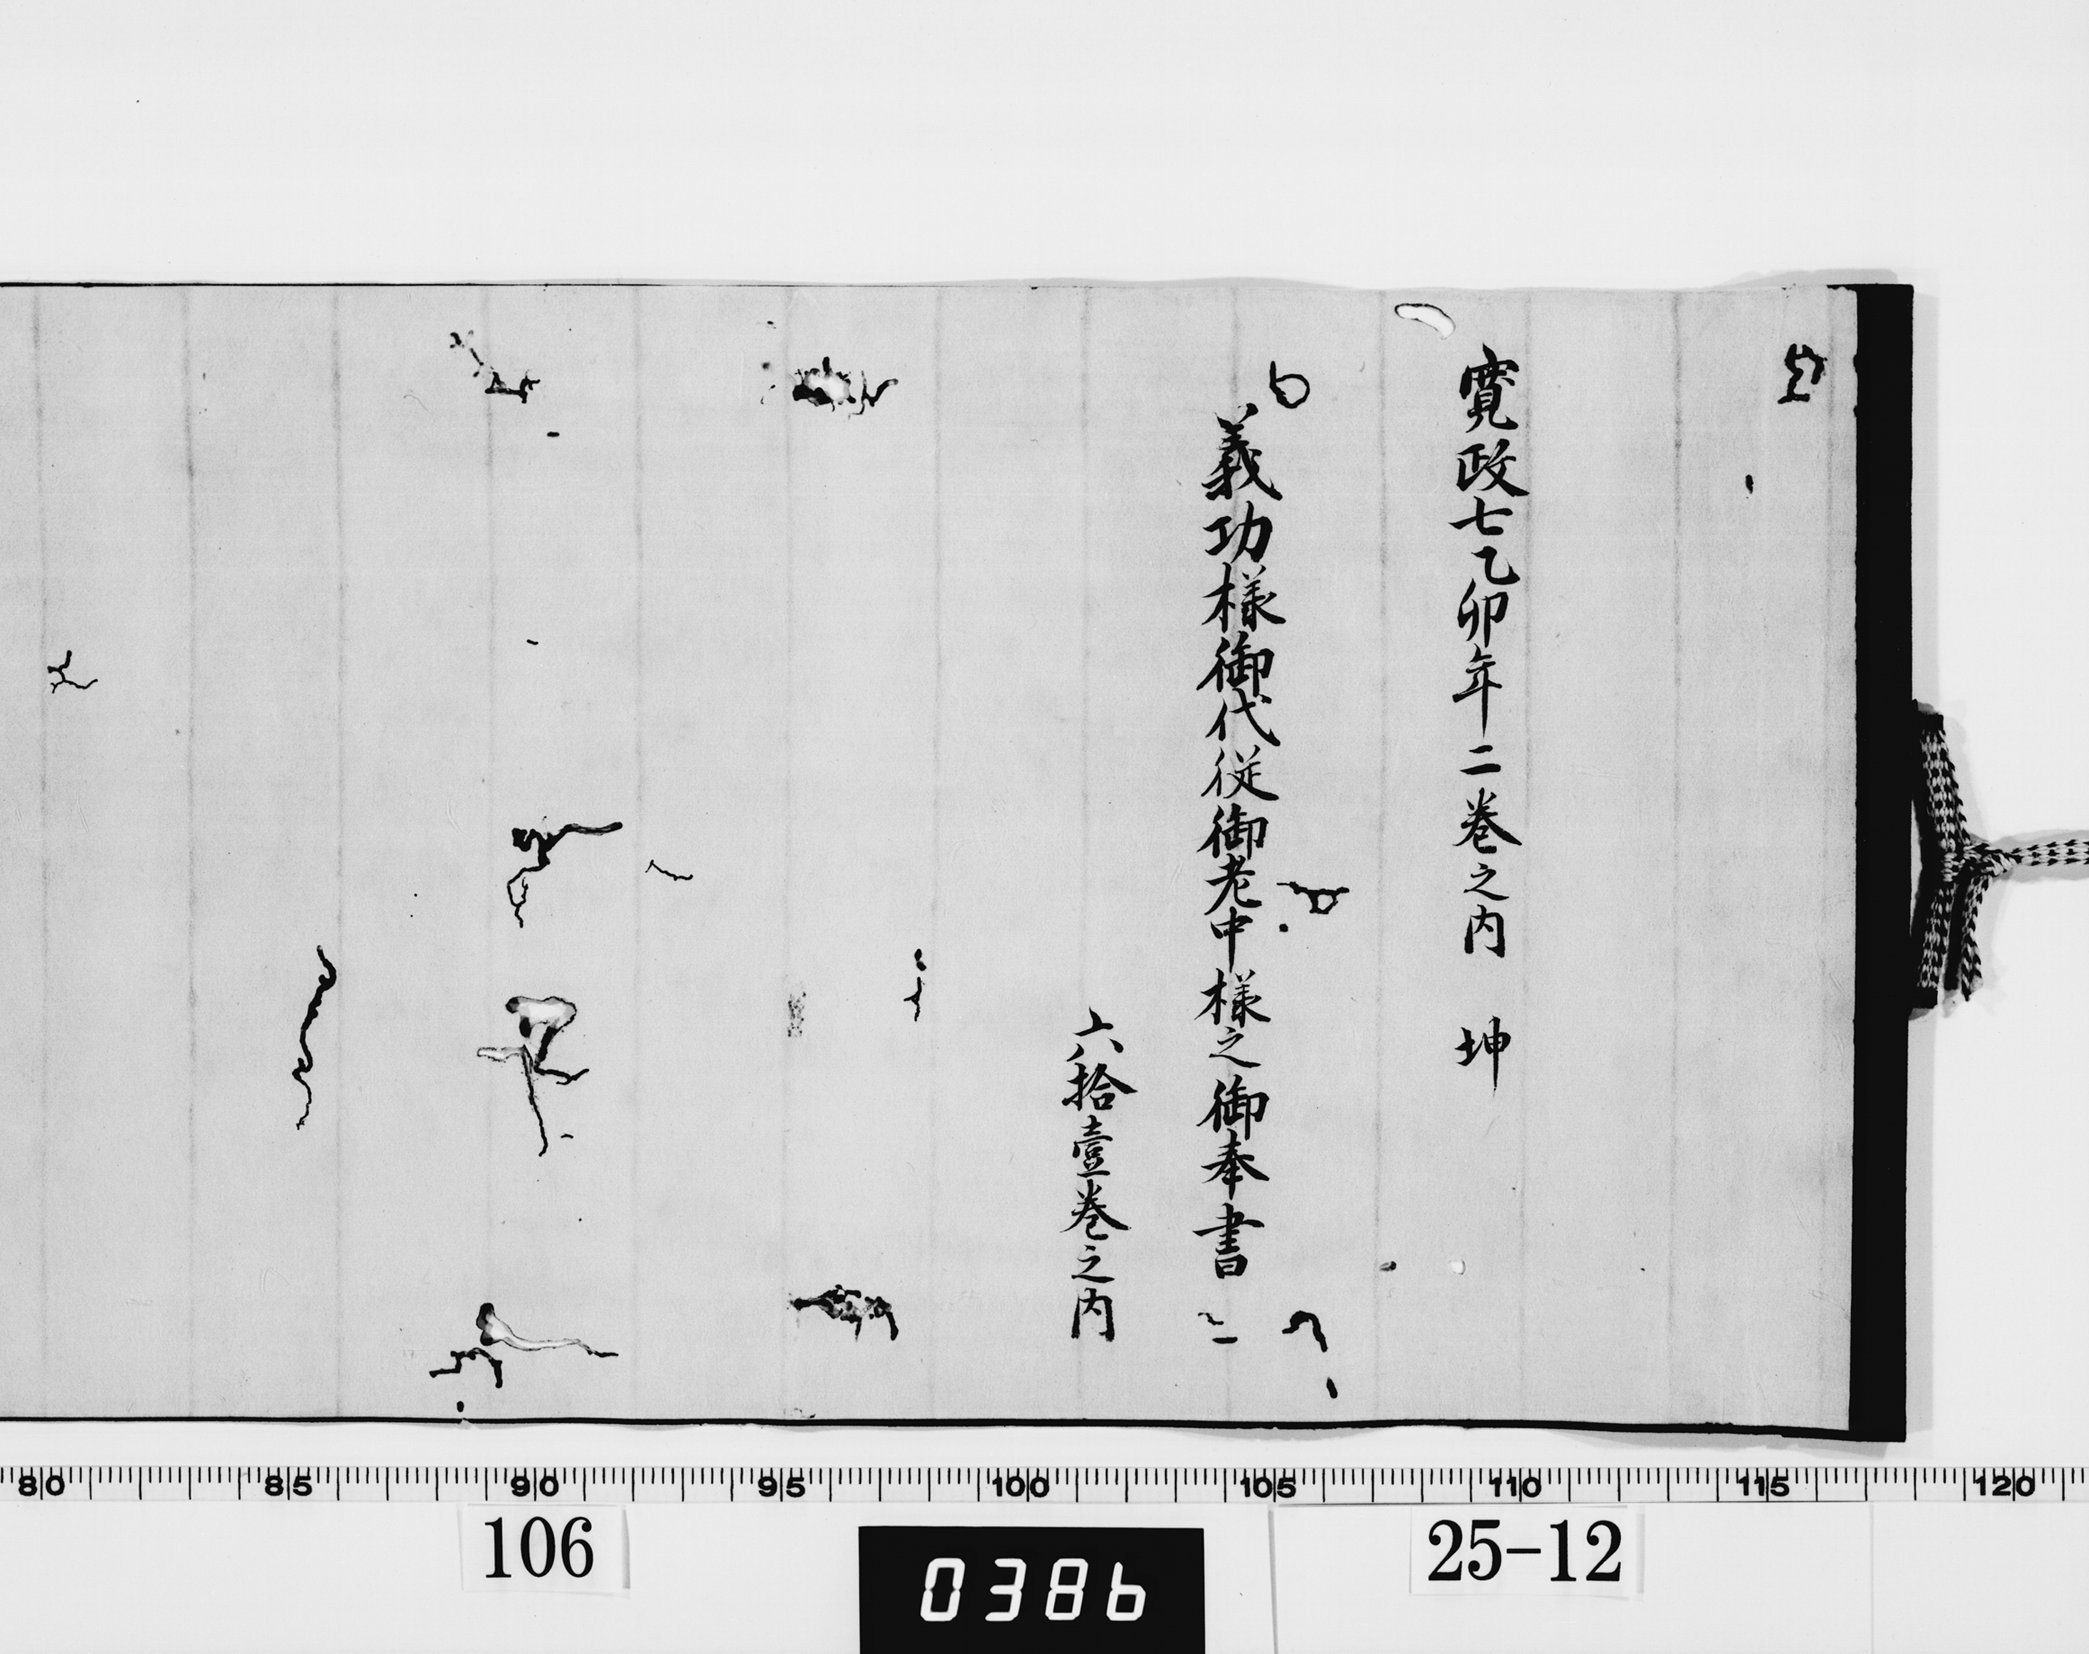 寛政七乙卯年二巻之内　坤
義功様御代従御老中様之御奉書
六拾壹巻之内
80 85 90 95 100 105 110 115 120
106
0386
25-12